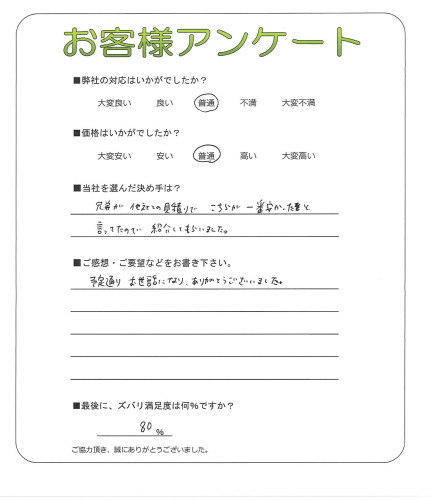 お客様アンケート
■弊社の対応はいかがでしたか？
大変良い 良い 普通 不満 大変不満
■価格はいかがでしたか？
大変安い 安い 普通 高い 大変高い
■当社を選んだ決め手は？
兄弟が 他社との見積りで こちらが 一番安かった と
言ってたので 紹介してもらいました。
■ご感想・ご要望などをお書き下さい。
予定通り お世話になり、ありがとうございました。
■最後に、ズバリ満足度は何%ですか？
80 %
ご協力頂き、誠にありがとうございました。